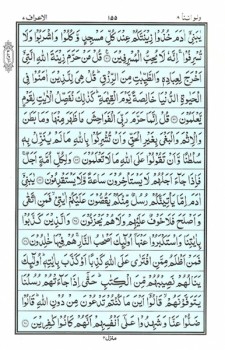 ولو اننا ٨ ١٥٥ الاعراف ٧
يٰبَنِيْٓ اٰدَمَ خُذُوْا زِيْنَتَكُمْ عِنْدَ كُلِّ مَسْجِدٍ وَّكُلُوْا وَاشْرَبُوْا وَلَا
تُسْرِفُوْا ۚ اِنَّهٗ لَا يُحِبُّ الْمُسْرِفِيْنَ ۝ قُلْ مَنْ حَرَّمَ زِيْنَةَ اللّٰهِ الَّتِيْٓ
اَخْرَجَ لِعِبَادِهٖ وَالطَّيِّبٰتِ مِنَ الرِّزْقِ ۭ قُلْ هِيَ لِلَّذِيْنَ اٰمَنُوْا فِي
الْحَيٰوةِ الدُّنْيَا خَالِصَةً يَّوْمَ الْقِيٰمَةِ ۭ كَذٰلِكَ نُفَصِّلُ الْاٰيٰتِ لِقَوْمٍ
يَّعْلَمُوْنَ ۝ قُلْ اِنَّمَا حَرَّمَ رَبِّيَ الْفَوَاحِشَ مَا ظَهَرَ مِنْهَا وَمَا بَطَنَ
وَالْاِثْمَ وَالْبَغْيَ بِغَيْرِ الْحَقِّ وَاَنْ تُشْرِكُوْا بِاللّٰهِ مَا لَمْ يُنَزِّلْ بِهٖ
سُلْطٰنًا وَّاَنْ تَقُوْلُوْا عَلَى اللّٰهِ مَا لَا تَعْلَمُوْنَ ۝ وَلِكُلِّ اُمَّةٍ اَجَلٌ ۚ
فَاِذَا جَاۗءَ اَجَلُهُمْ لَا يَسْتَاْخِرُوْنَ سَاعَةً وَّلَا يَسْتَقْدِمُوْنَ ۝ يٰبَنِيْٓ
اٰدَمَ اِمَّا يَاْتِيَنَّكُمْ رُسُلٌ مِّنْكُمْ يَقُصُّوْنَ عَلَيْكُمْ اٰيٰتِيْ ۙ فَمَنِ اتَّقٰى
وَاَصْلَحَ فَلَا خَوْفٌ عَلَيْهِمْ وَلَا هُمْ يَحْزَنُوْنَ ۝ وَالَّذِيْنَ كَذَّبُوْا
بِاٰيٰتِنَا وَاسْتَكْبَرُوْا عَنْهَآ اُولٰۗىِٕكَ اَصْحٰبُ النَّارِ ۚ هُمْ فِيْهَا خٰلِدُوْنَ ۝
فَمَنْ اَظْلَمُ مِمَّنِ افْتَرٰى عَلَى اللّٰهِ كَذِبًا اَوْ كَذَّبَ بِاٰيٰتِهٖ ۭ اُولٰۗىِٕكَ
يَنَالُهُمْ نَصِيْبُهُمْ مِّنَ الْكِتٰبِ ۭ حَتّٰٓي اِذَا جَاۗءَتْهُمْ رُسُلُنَا
يَتَوَفَّوْنَهُمْ ۙ قَالُوْٓا اَيْنَ مَا كُنْتُمْ تَدْعُوْنَ مِنْ دُوْنِ اللّٰهِ ۭ قَالُوْا
ضَلُّوْا عَنَّا وَشَهِدُوْا عَلٰٓي اَنْفُسِهِمْ اَنَّهُمْ كَانُوْا كٰفِرِيْنَ ۝
منزل ٢